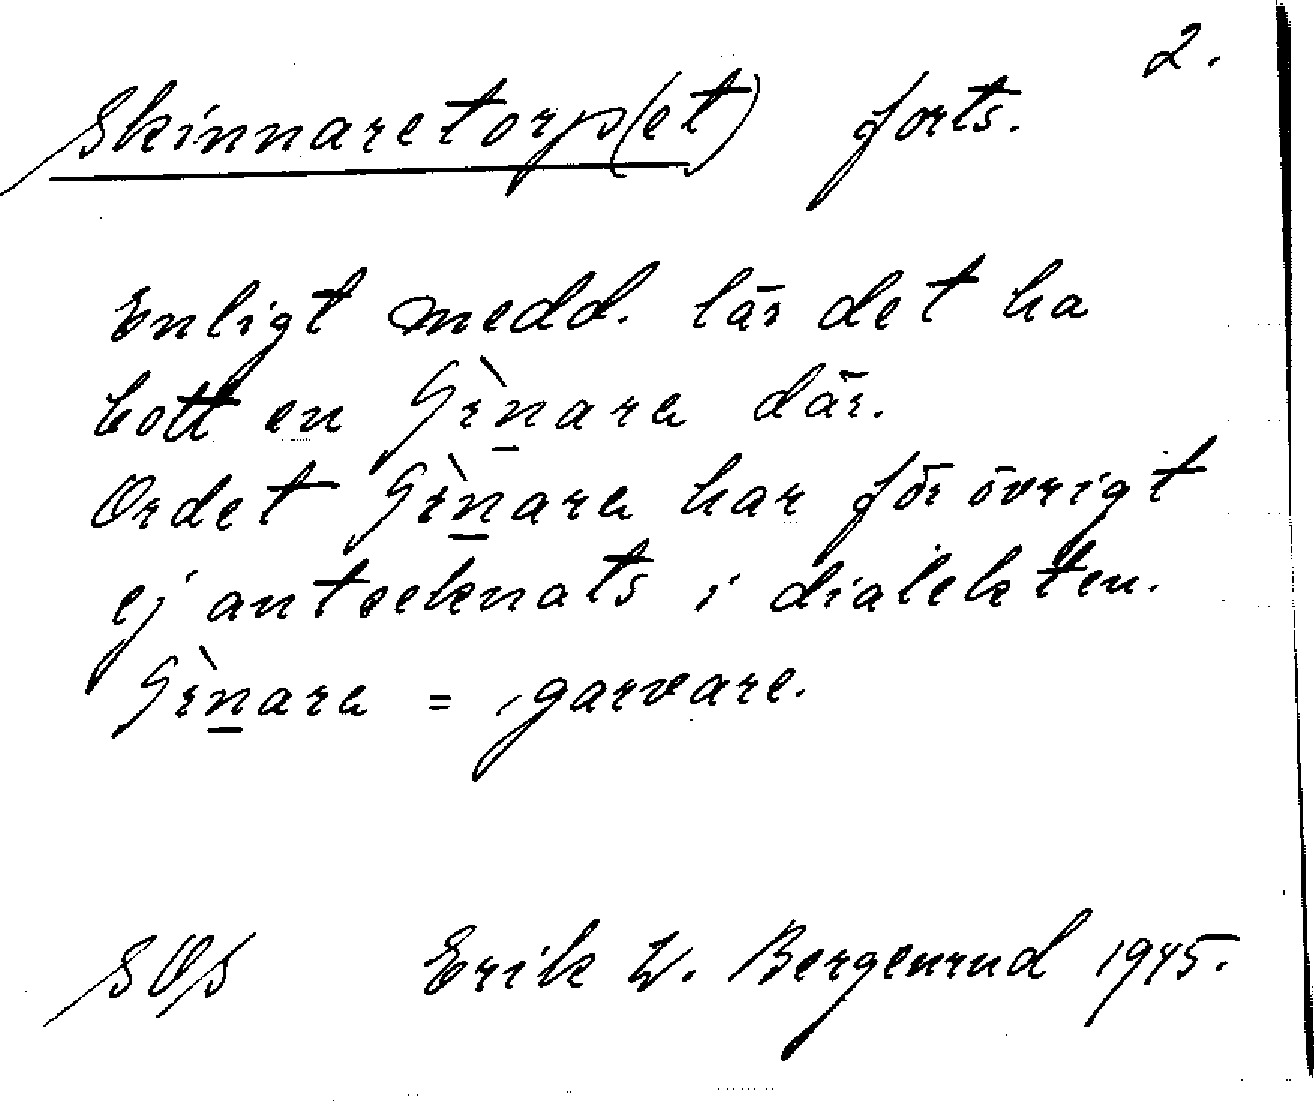 2.
Skinnaretorp(et) forts.
Enligt medd. lär det ha
bott en där.
Ordet har för övrigt
ej antecknats i dialekten.
= garvare.
SOS Erik W. Bergenrud 1945.